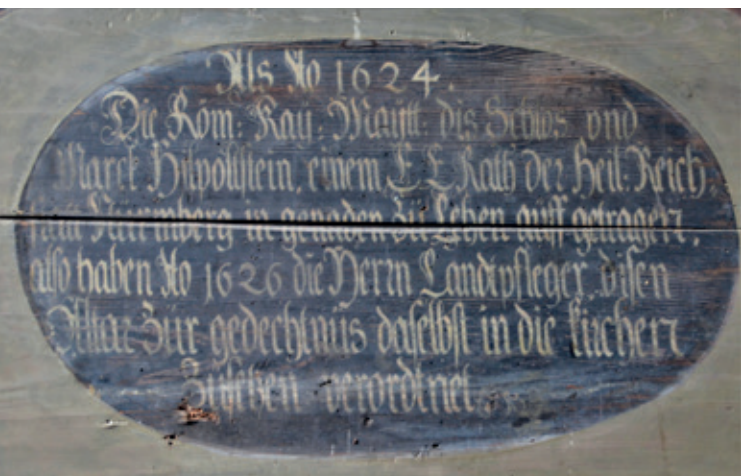 Als Ao 1624.
Die Röm: Kay: Maytt: dis Schlos vnd
Marck Hilpoltstein, einem E E Rath der Heil: Reich,
Nurmberg in genaden zu Lehen auff getragen,
also haben Ao 1626 die Herrn Landtpfleger, disen
Altar Zur gedechtnüs daselbst in die kirchen
Zusetzen verordtnet.